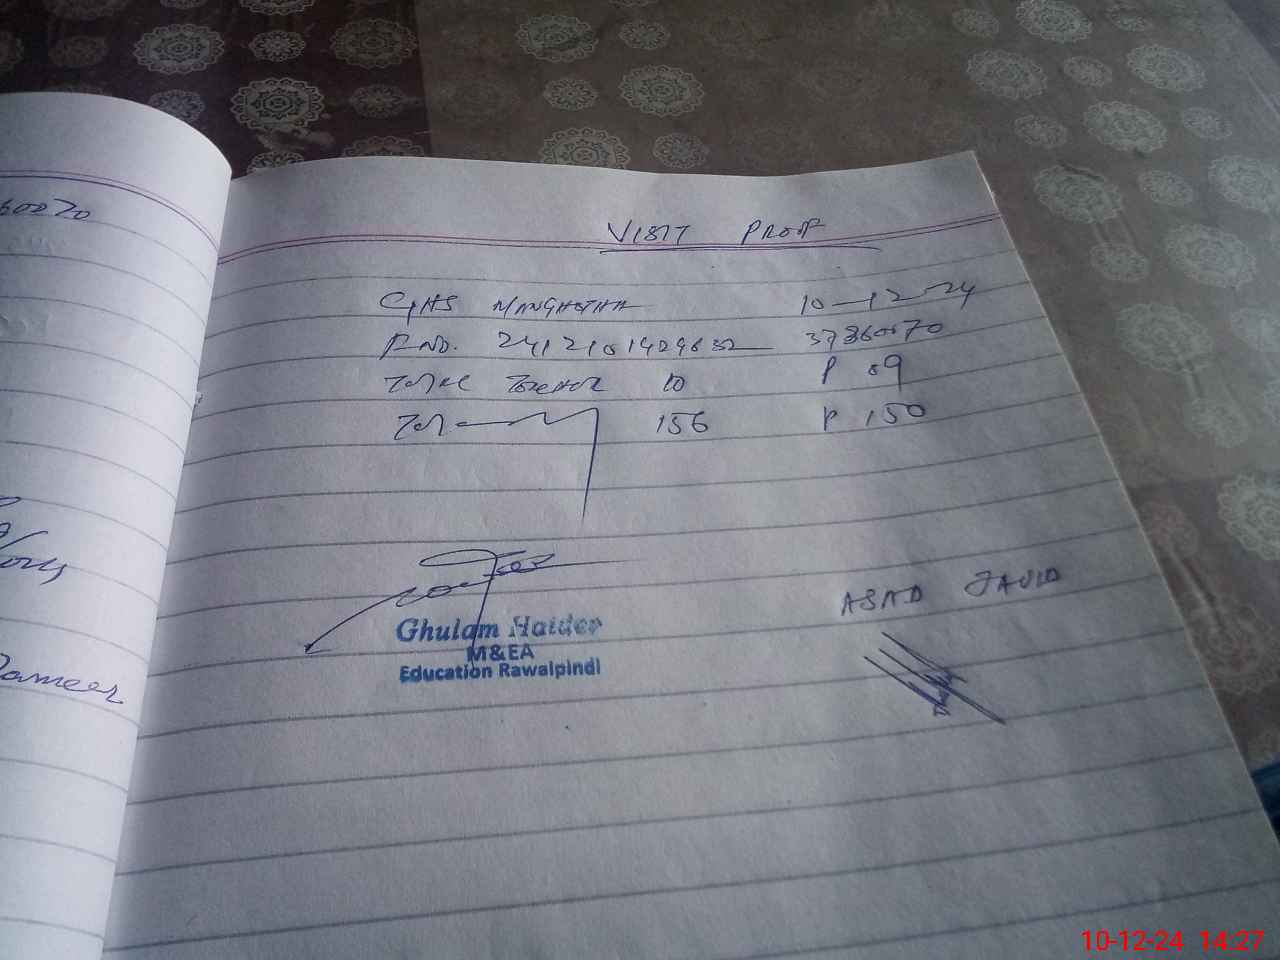 60070
VISIT PROOF
GHS MANGHOTHA 10-12-24
R.NO. 2412101429632 37360070
Total Teacher 10 P 09
Total 156 P 150
Ghulam Haider
M&EA
Education Rawalpindi
ASAD JAVID
Zameer
10-12-24 14:27